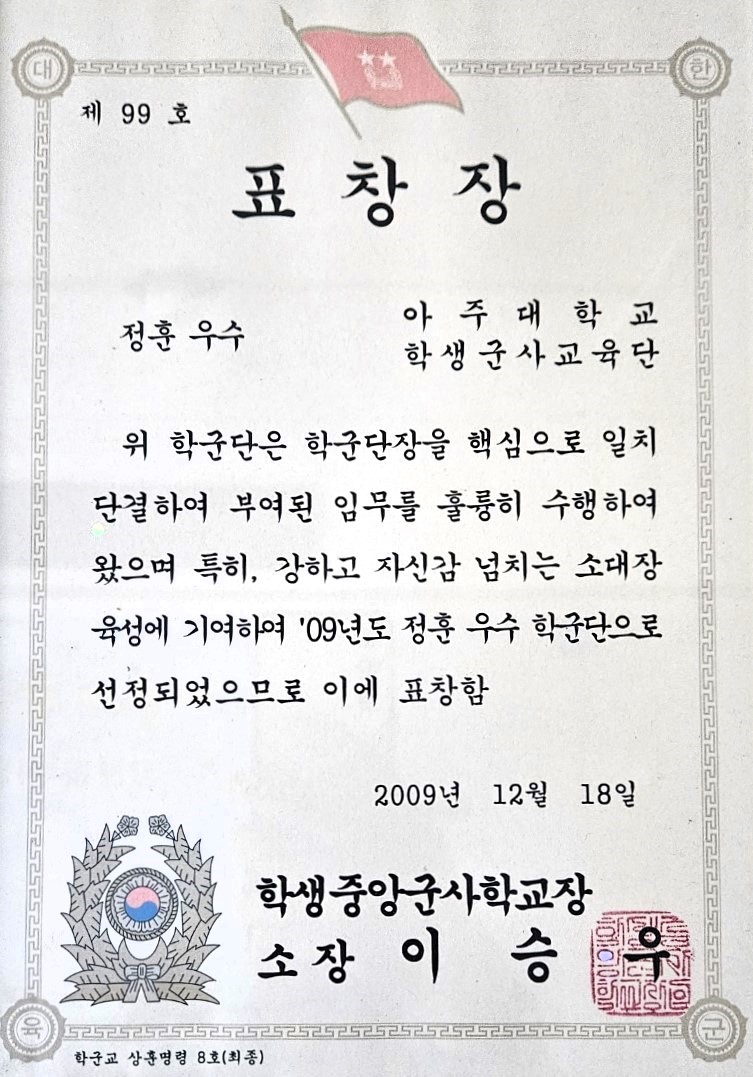 대
한
제 99 호
표 창 장
정훈 우수
아 주 대 학 교
학생군사교육단
위 학군단은 학군단장을 핵심으로 일치
단결하여 부여된 임무를 훌륭히 수행하여
왔으며 특히, 강하고 자신감 넘치는 소대장
육성에 기여하여 '09년도 정훈 우수 학군단으로
선정되었으므로 이에 표창함
2009년 12월 18일
학생중앙군사학교장
소장 이 승 우
육
군
학군교 상훈명령 8호(최종)